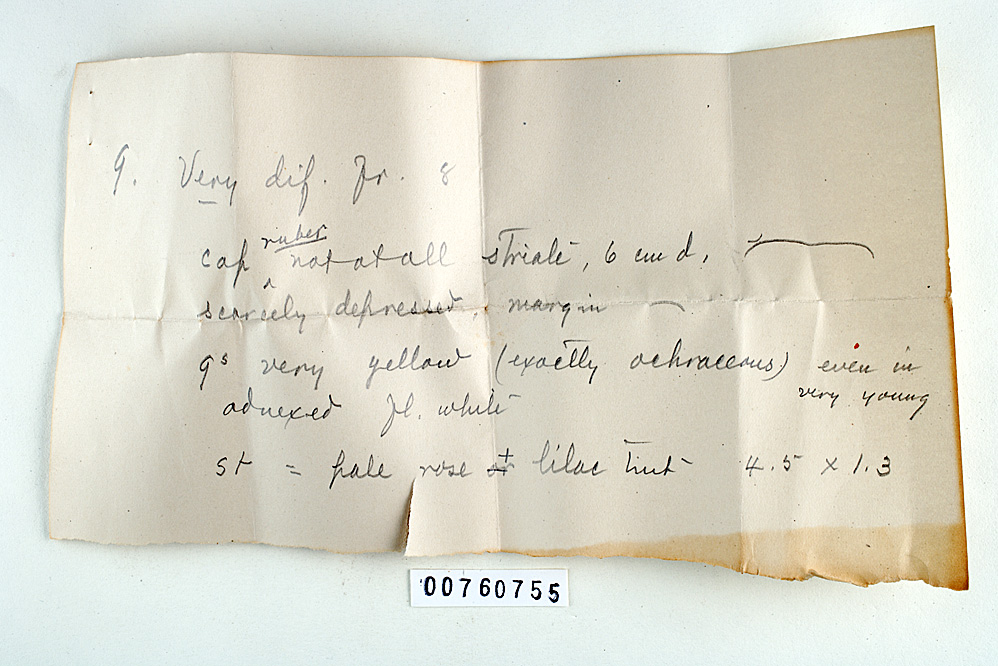 9. Very dif. fr. 8
ruber
cap not at all striate, 6 cm d,
scarcely depressed, margin
gs very yellow (exactly ochraceous) even in
very young
adnexed fl. white
st = pale rose + lilac tint 4.5 x 1.3
00760755